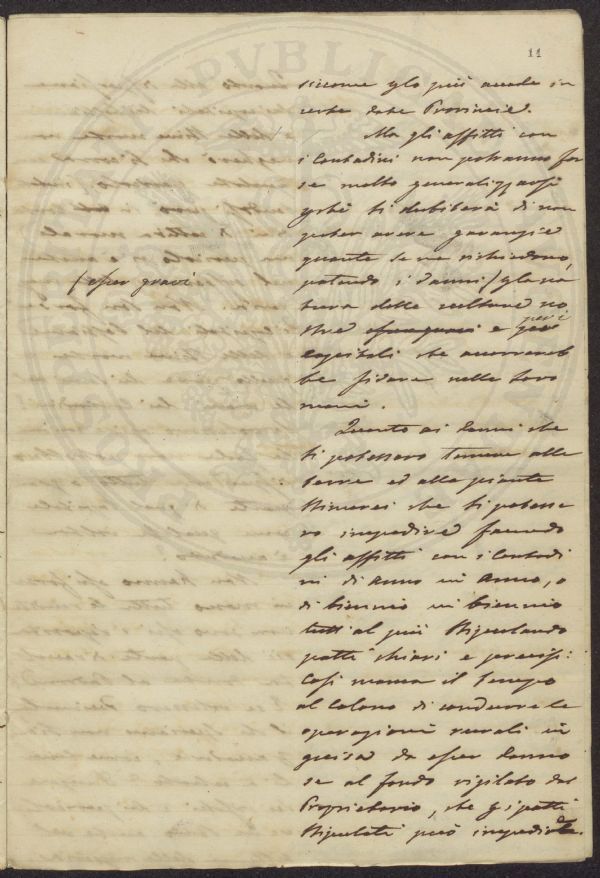 11
siccome glo più accade in
certe date Provincie.
Ma gli affitti con
i Contadini non potranno for
se molto generalizzarsi
perchè si dubiterà di non
poter avere garanzie
quante se ne richiedono,
potendo i danni / per la na
(esser gravi
tura delle colture no
stre e pei
Capitali che occorrereb
be fidare nelle loro
mani.
Quanto ai danni che
si potessero temere alle
terre ed alle piante
stimerei che si potesse
ro impedire facendo
gli affitti con i Contadi
ni di anno in anno, o
di biennio in biennio
tutt'al più stipulando
patti chiari e precisi:
Così manca il tempo
al Colono di condurre le
operazioni rurali in
guisa da esser danno
se al fondo vigilato dal
Proprietario, che gi patti
stipulati può impedirle.